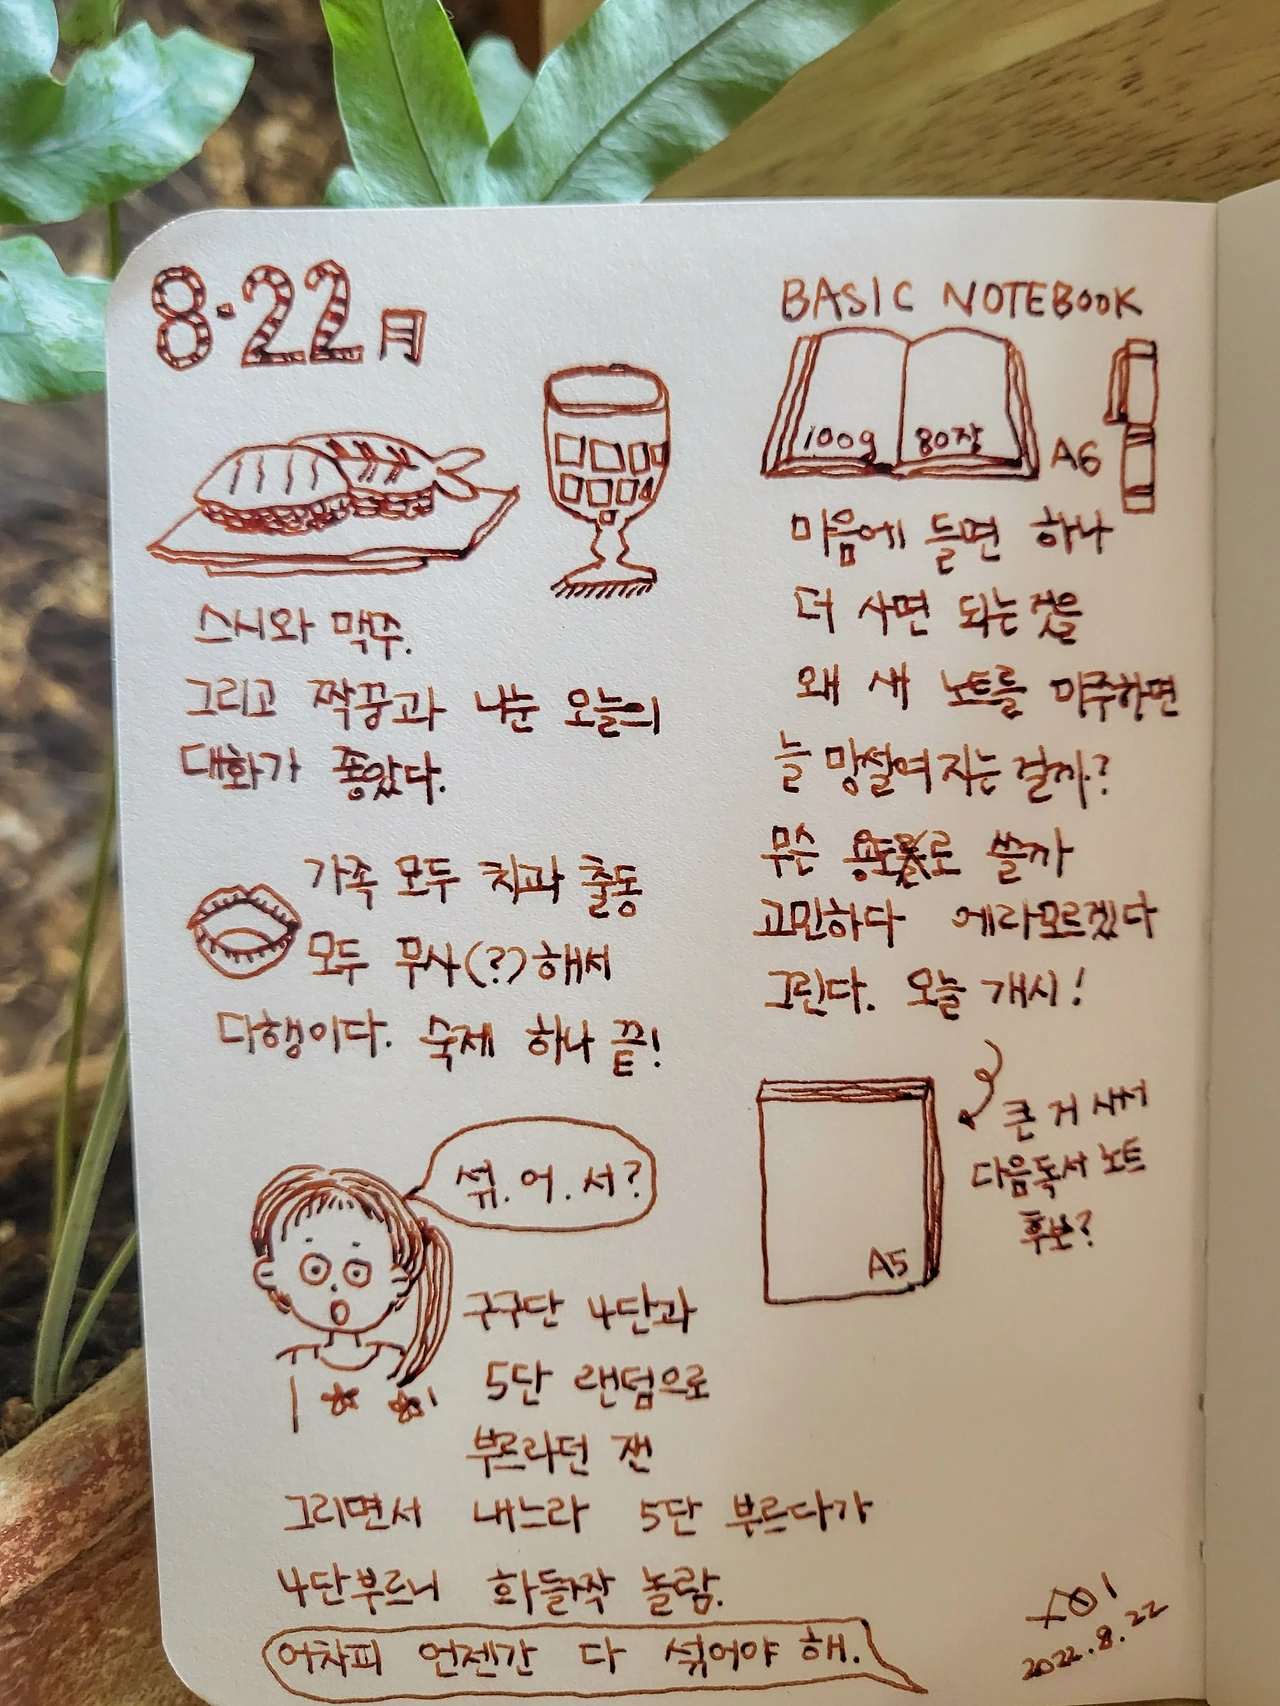 8.22 月
스시와 맥주.
그리고 짝꿍과 나눈 오늘의
대화가 좋았다.
가족 모두 치과 출동
모두 무사(?)해서
다행이다. 숙제 하나 끝!
섞.어.서?
구구단 4단과
5단 랜덤으로
부르라던 잰
그리면서 내느라 5단 부르다가
4단부르니 화들짝 놀람.
어차피 언젠간 다 섞어야 해.
BASIC NOTEBOOK
100g 80장
A6
마음에 들면 하나
더 사면 되는것을
왜 새 노트를 마주하면
늘 망설여지는걸까?
무슨 용도로 쓸까
고민하다 에라모르겠다
그린다. 오늘 개시!
큰 거 사서
다음독서 노트
후보?
A5
2022.8.22